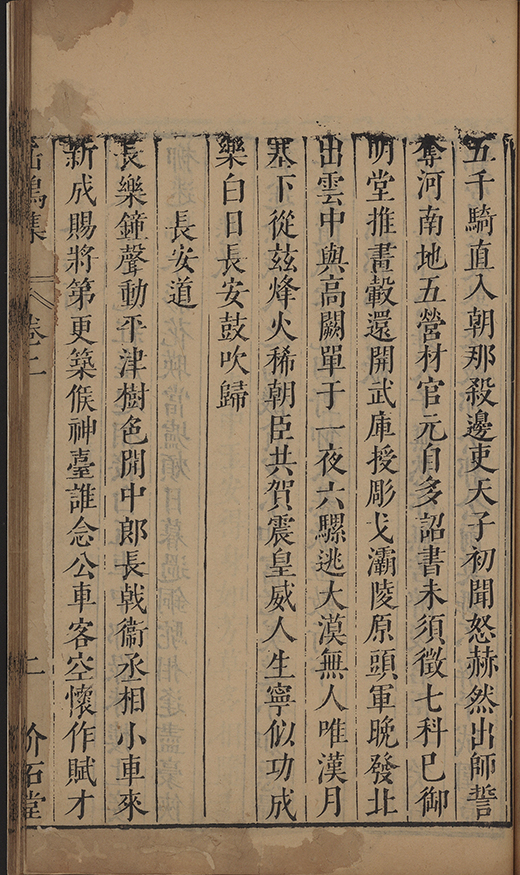 五千騎直入朝那殺邊吏天子初聞怒赫然出師誓
奪河南地五營材官元自多詔書未須徵七科已御
明堂推畫轂還開武庫授彫戈灞陵原頭軍晚發北
出雲中與高闕單于一夜六騾逃大漠無人唯漢月
塞下從茲烽火稀朝臣共賀震皇威人生寧似功成
樂白日長安鼓吹歸
長安道
長樂鐘聲動平津樹色開中郎長戟衞丞相小車來
新成賜將第更築候神臺誰念公車客空懷作賦才
鳴集
卷二
二
介石堂